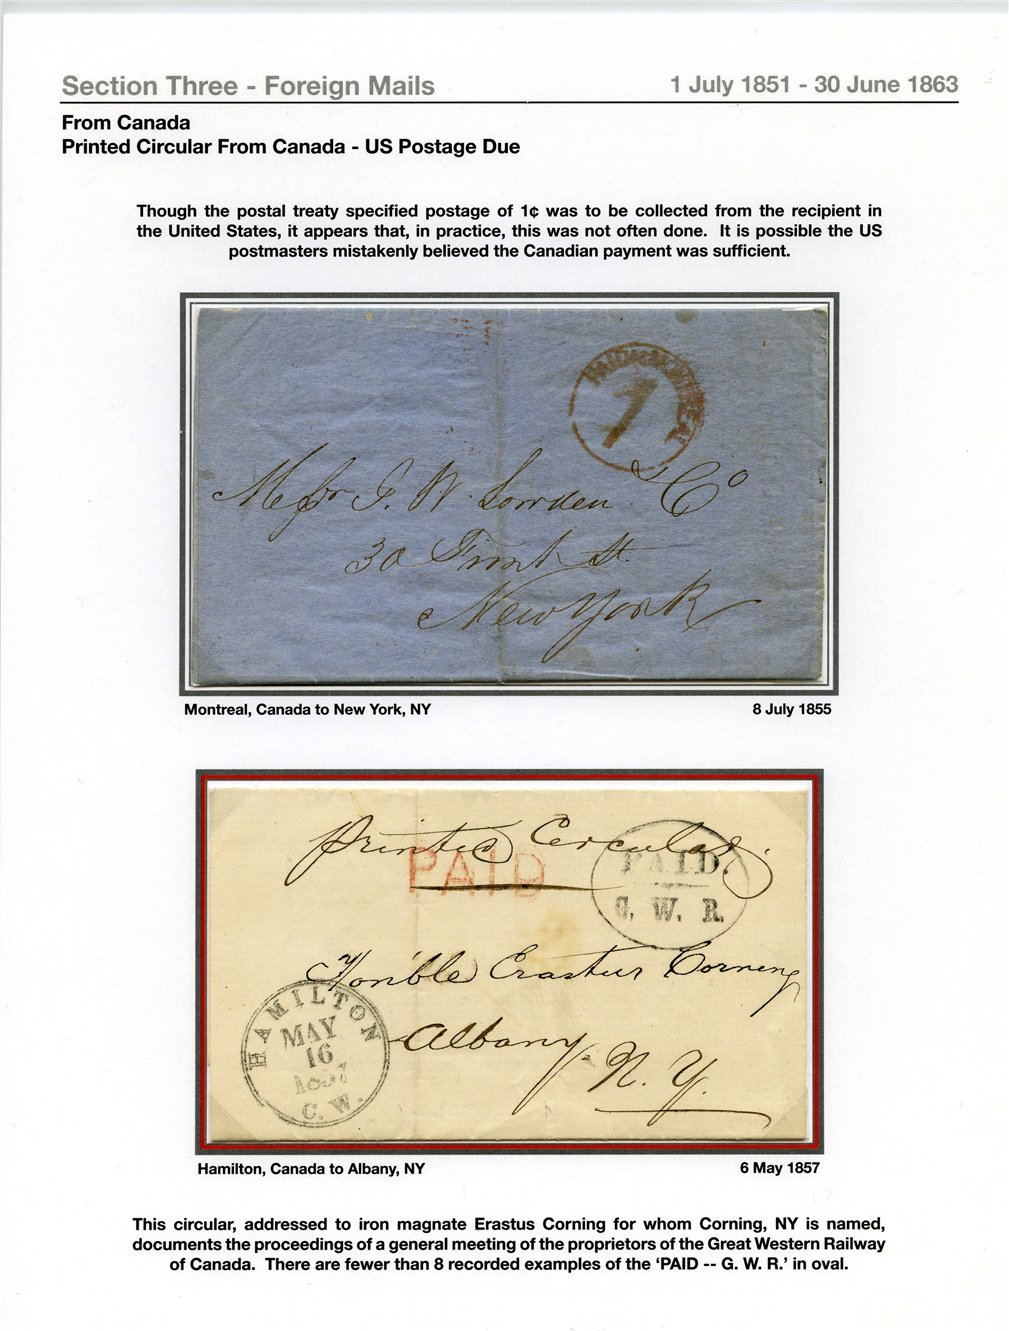 Section Three - Foreign Mails
1 July 1851 - 30 June 1863
From Canada
Printed Circular From Canada - US Postage Due
Though the postal treaty specified postage of 1¢ was to be collected from the recipient in
the United States, it appears that, in practice, this was not often done. It is possible the US
postmasters mistakenly believed the Canadian payment was sufficient.
PAID MONTREAL
1
Messr J. W. Lowden & Co
30 Front St.
New York
Montreal, Canada to New York, NY
8 July 1855
Printed Circular.
PAID
PAID.
G. W. R.
Honible Erastus Corning
Albany.
N. Y.
HAMILTON
MAY
16
1857
C. W.
Hamilton, Canada to Albany, NY
6 May 1857
This circular, addressed to iron magnate Erastus Corning for whom Corning, NY is named,
documents the proceedings of a general meeting of the proprietors of the Great Western Railway
of Canada. There are fewer than 8 recorded examples of the 'PAID -- G. W. R.' in oval.